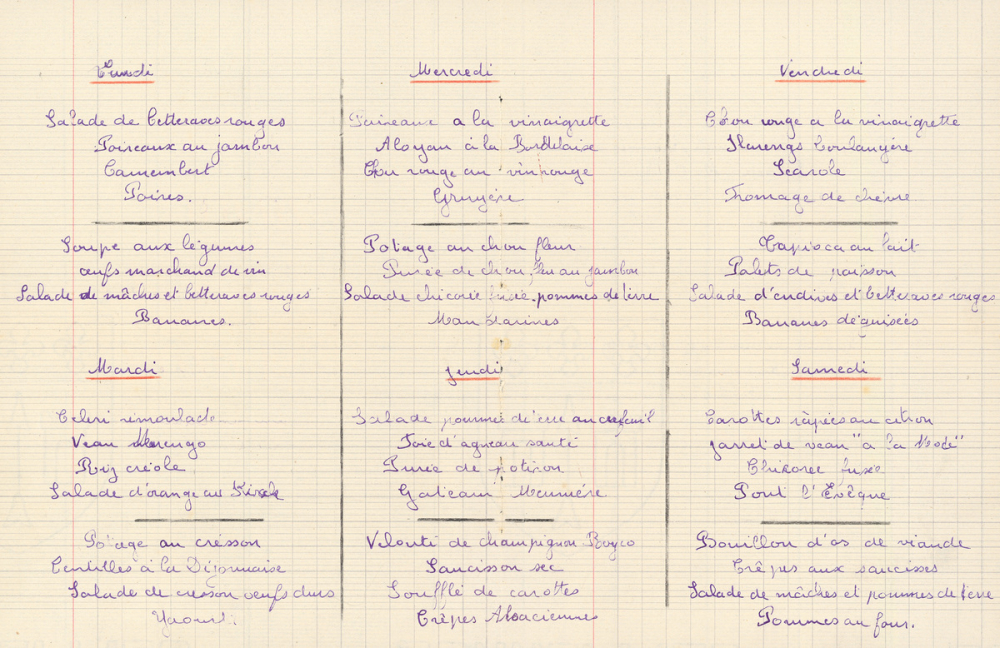 Lundi
Salade de betteraves rouges
Poireaux au jambon
Camembert
Poires.
Soupe aux légumes
œufs marchand de vin
Salade de mâches et betteraves rouges
Bananes.
Mardi
Céleri rémoulade
Veau Marengo
Riz créole
Salade d'orange au Kirsch
Potage au crésson
Lentilles à la Dijonnaise
Salade de cresson œufs durs
Yaourt.
Mercredi
Poireaux a la vinaigrette
Aloyau à la Bordelaise
Chou rouge au vin rouge
Gruyère
Potage au chou fleur
Purée de chou fleu au jambon
Salade chicorée frisée, pommes de terre
Mandarines
Jeudi
Salade pomme de terre au cerfeuil
Foie d'agneau sauté
Purée de potiron
Gateau Meunière
Velouté de champignon Royco
Saucisson sec
Soufflé de carottes
Crêpes Alsaciennes
Vendredi
Chou rouge a la vinaigrette
Harengs boulangère
Scarole
Fromage de chèvre
Tapioca au lait
Palets de poisson
Salade d'endives et betteraves rouges
Bananes déguisées
Samedi
Carottes rapées au citron
Jarret de veau "a la Mode"
Chicorée frisée
Pont l'Evêque
Bouillon d'os de viande
Crêpes aux saucisses
Salade de mâches et pommes de terre
Pommes au four.